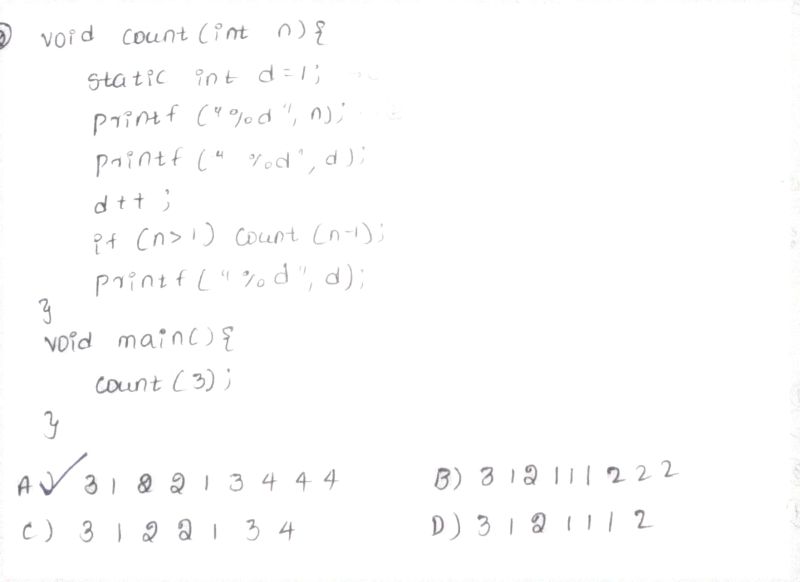 void count (int n){
static int d=1;
printf ("%d", n);
printf (" %d", d);
d++;
if (n>1) count (n-1);
printf ("%d", d);
}
void main(){
count (3);
}
A) 3 1 2 2 1 3 4 4 4 B) 3 1 2 1 1 1 2 2 2
C) 3 1 2 2 1 3 4 D) 3 1 2 1 1 1 2